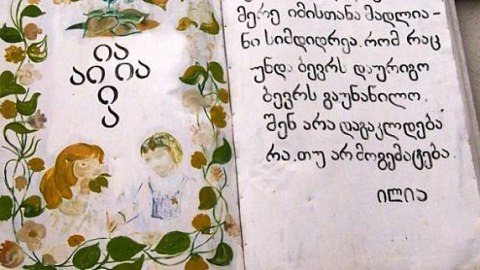 ია
აი ია
ი
ა
მერე იმისთანა მადლია-
ნი სიმდიდრეა. რომ რაც
უნდა ბევრს დაურიგო
ბევრს გაუნაწილო,
შენ არა დაგაკლდება
რა. თუ არ მოგემატება.
ილია